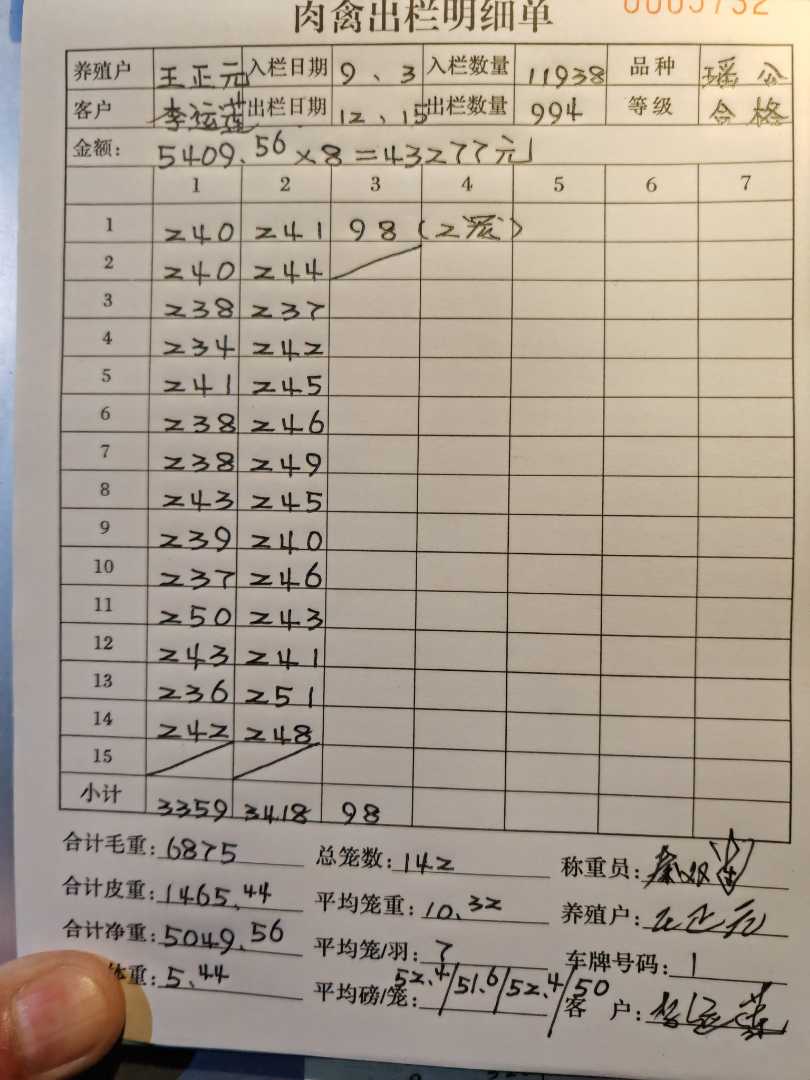 肉禽出栏明细单
养殖户 王正元 入栏日期 9、3 入栏数量 11938 品种 瑶公
客户 李运莲 出栏日期 12、15 出栏数量 994 等级 合格
金额: 5409.56×8=43277元
1 2 3 4 5 6 7
1 240 241 98(2笼)
2 240 244
3 238 237
4 234 242
5 241 245
6 238 246
7 238 249
8 243 245
9 239 240
10 237 246
11 250 243
12 243 241
13 236 251
14 242 248
15
小计 3359 3418 98
合计毛重: 6875 总笼数: 142 称重员:
合计皮重: 1465.44 平均笼重: 10.32 养殖户: 王正元
合计净重: 5049.56 平均笼/羽: 7 车牌号码: 1
体重: 5.44 平均磅/笼: 52.4/51.6/52.4/50 客户: